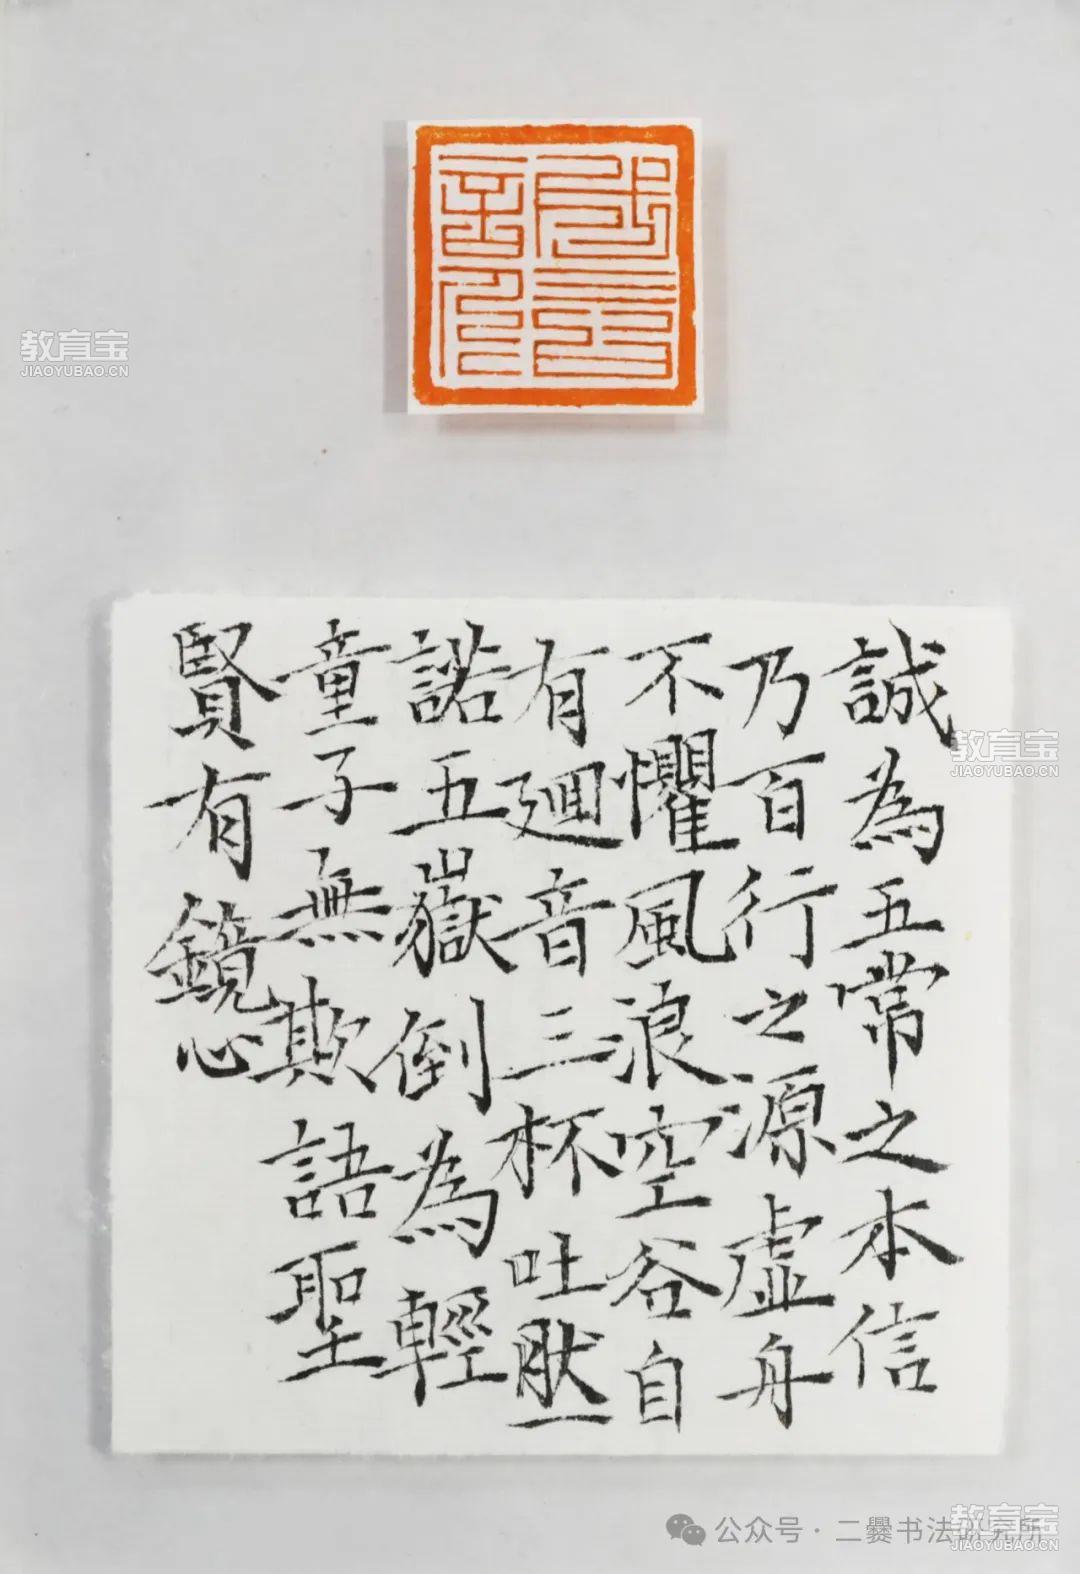 誠為五常之本信
乃百行之源虛舟
不懼風浪空谷自
有迴音三杯吐然
諾五嶽倒為輕
童子無欺語聖
賢有鏡心
教育宝
JIAOYUBAO.CN
教育宝
JIAOYUBAO.CN
公众号·二爨书法研究所
教育宝
JIAOYUBAO.CN